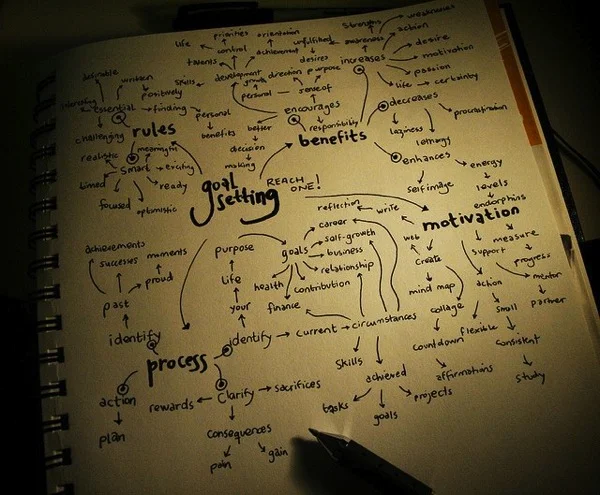 goal
setting
REACH
ONE!
rules
essential
desirable
written
positively
interesting
challenging
finding
personal
benefits
smart
meaningful
exciting
realistic
timed
focused
optimistic
ready
benefits
encourages
better
decision
making
responsibility
personal
growth
sense of
direction
purpose
development
skills
talents
life
control
priorities
orientation
achievement
unfulfilled
desires
increases
awareness
strengths
weaknesses
action
desire
motivation
passion
life
certainty
decreases
procrastination
laziness
lethargy
enhances
self image
energy
levels
endorphins
motivation
write
reflection
web
create
mind map
collage
countdown
support
action
flexible
affirmations
small
consistent
study
measure
progress
mentor
partner
process
identify
past
achievements
successes
moments
proud
action
plan
clarify
rewards
sacrifices
consequences
pain
gain
identify
your
life
purpose
goals
career
self-growth
business
relationship
contribution
health
finance
current
circumstances
skills
achieved
tasks
goals
projects